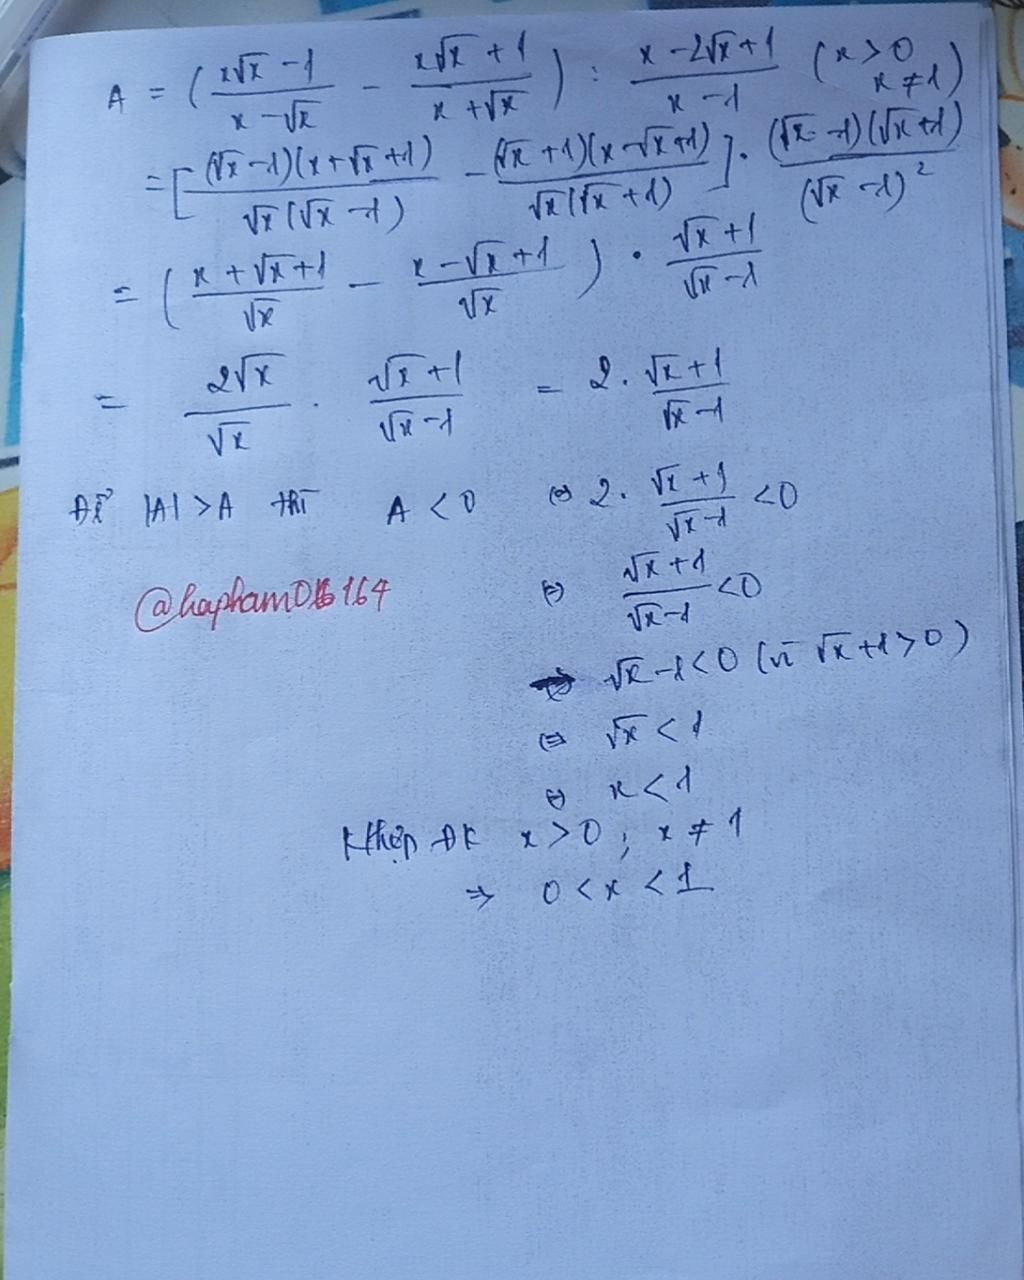 A = (x√x - 1 / x - √x - x√x + 1 / x + √x) : x - 2√x + 1 / x - 1 (x > 0 x ≠ 1)
= [(√x - 1)(x + √x + 1) / √x(√x - 1) - (√x + 1)(x - √x + 1) / √x(√x + 1)] . (√x - 1)(√x + 1) / (√x - 1)²
= (x + √x + 1 / √x - x - √x + 1 / √x) . √x + 1 / √x - 1
= 2√x / √x . √x + 1 / √x - 1 = 2. √x + 1 / √x - 1
Để |A| > A thì A < 0 ⇔ 2. √x + 1 / √x - 1 < 0
@hapham016164
⇔ √x + 1 / √x - 1 < 0
⇔ √x - 1 < 0 (vì √x + 1 > 0)
⇔ √x < 1
⇔ x < 1
K hợp ĐK x > 0 ; x ≠ 1
⇒ 0 < x < 1